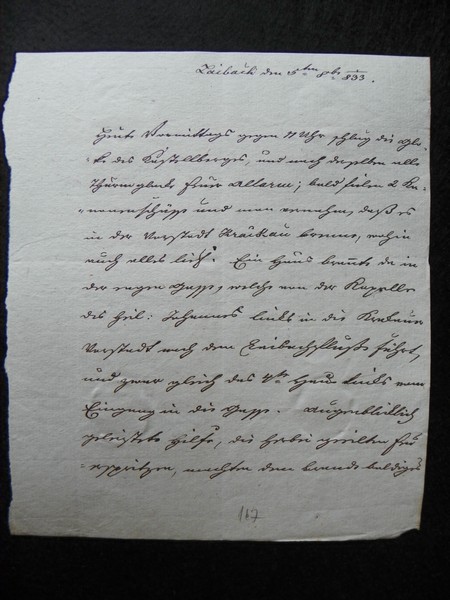 Laibach den 5ten 8be 833.
Heute Vormittags gegen 11 Uhr schlug die Glo-
-ke des Kastellberges, und nach derselben alle
Thürmglocken Feuer Allarm; bald fielen 2 Ka-
-nonenschüsse und man vernahm, daß es
in der Vorstadt Krakau brenne, wohin
auch alles lief. Ein Haus brannte da in
der engen Gasse, welche von der Kapelle
des heil: Johannes links in die Krakauer
Vorstadt nach dem Laibachflusse führt,
und zwar gleich das 4te Haus links vom
Eingang in die Gasse. Augenblicklich
geleistete Hilfe, die herbei geeilten Feu-
-erspritzen, machten dem Brande baldiges
117